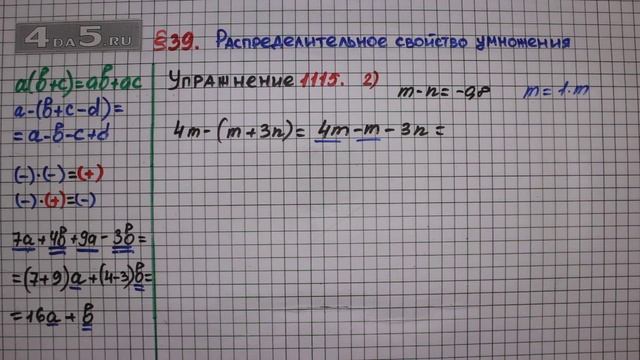 4DA5.RU
§39. Распределительное свойство умножения
a(b+c)=ab+ac
a-(b+c-d)=
=a-b-c+d
(-)·(-)=(+)
(-)·(+)=(-)
7a+4b+9a-3b=
=(7+9)a+(4-3)b=
=16a+b
Упражнение 1115. 2)
m-n=-9,8 m=1·m
4m-(m+3n)=4m-m-3n=